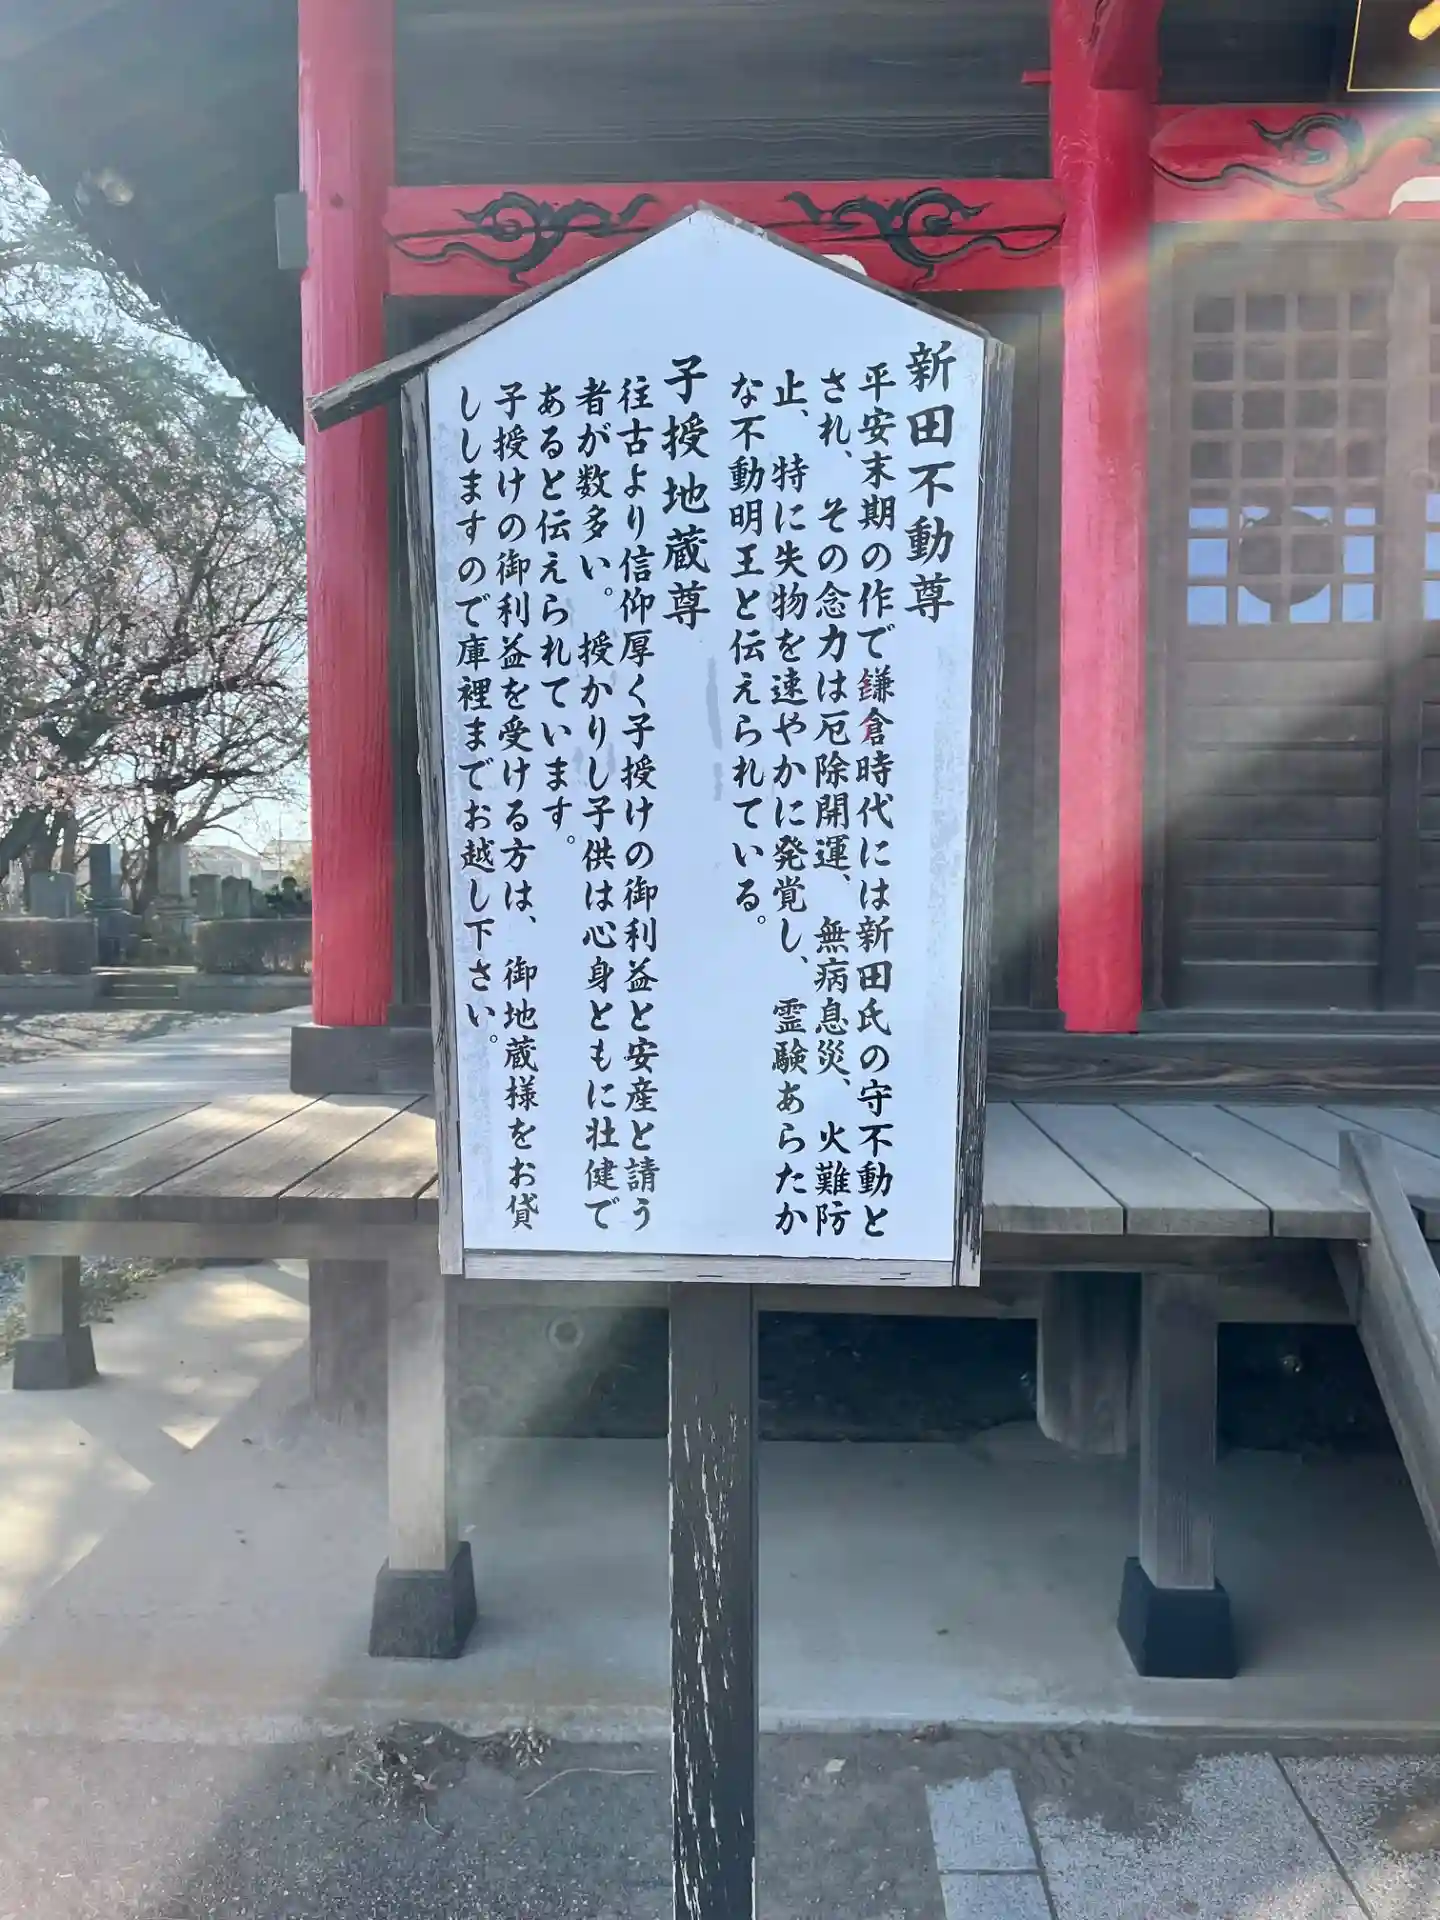 新田不動尊
平安末期の作で鎌倉時代には新田氏の守不動と
され、その念力は厄除開運、無病息災、火難防
止、特に失物を速やかに発覚し、霊験あらたか
な不動明王と伝えられている。
子授地蔵尊
往古より信仰厚く子授けの御利益と安産と請う
者が数多い。授かりし子供は心身ともに壮健で
あると伝えられています。
子授けの御利益を受ける方は、御地蔵様をお貸
ししますので庫裡までお越し下さい。